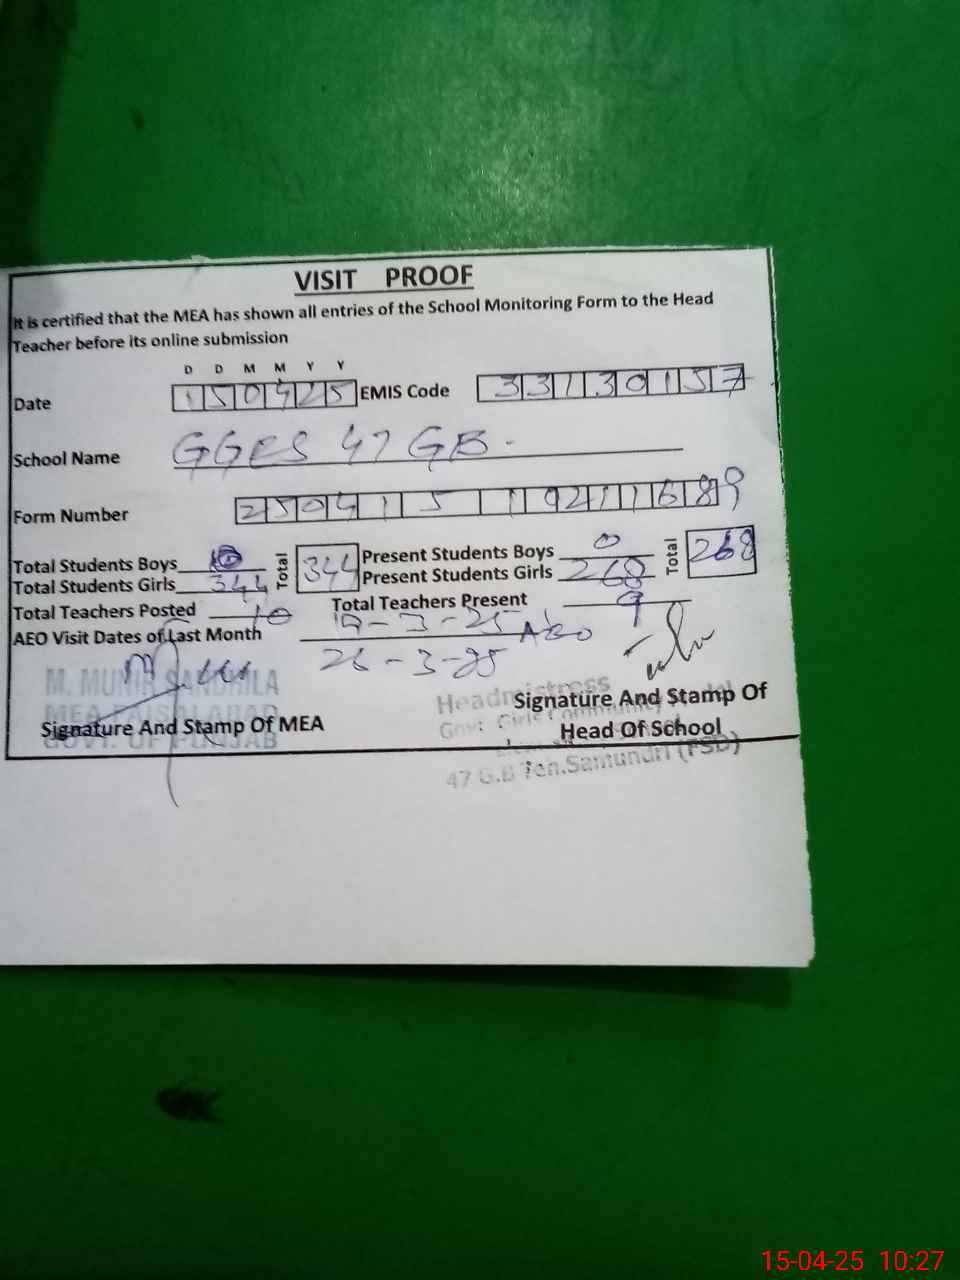 VISIT PROOF
It is certified that the MEA has shown all entries of the School Monitoring Form to the Head
Teacher before its online submission
D D M M Y Y
Date 150425 EMIS Code 33130157
School Name GGES 47 GB
Form Number 25041519211689
Total Students Boys 0 Total 344 Present Students Boys 0 Total 268
Total Students Girls 344 Present Students Girls 268
Total Teachers Posted 10 Total Teachers Present 9
AEO Visit Dates of Last Month 19-3-25 AEO
26-3-25
M. MUNIR SANDHILA
MEA FAISALABAD
GOVT. OF PUNJAB
Signature And Stamp Of MEA
Headmistress
Govt Girls Community Model
47 G.B Teh.Samundri (FSD)
Signature And Stamp Of
Head Of School
15-04-25 10:27